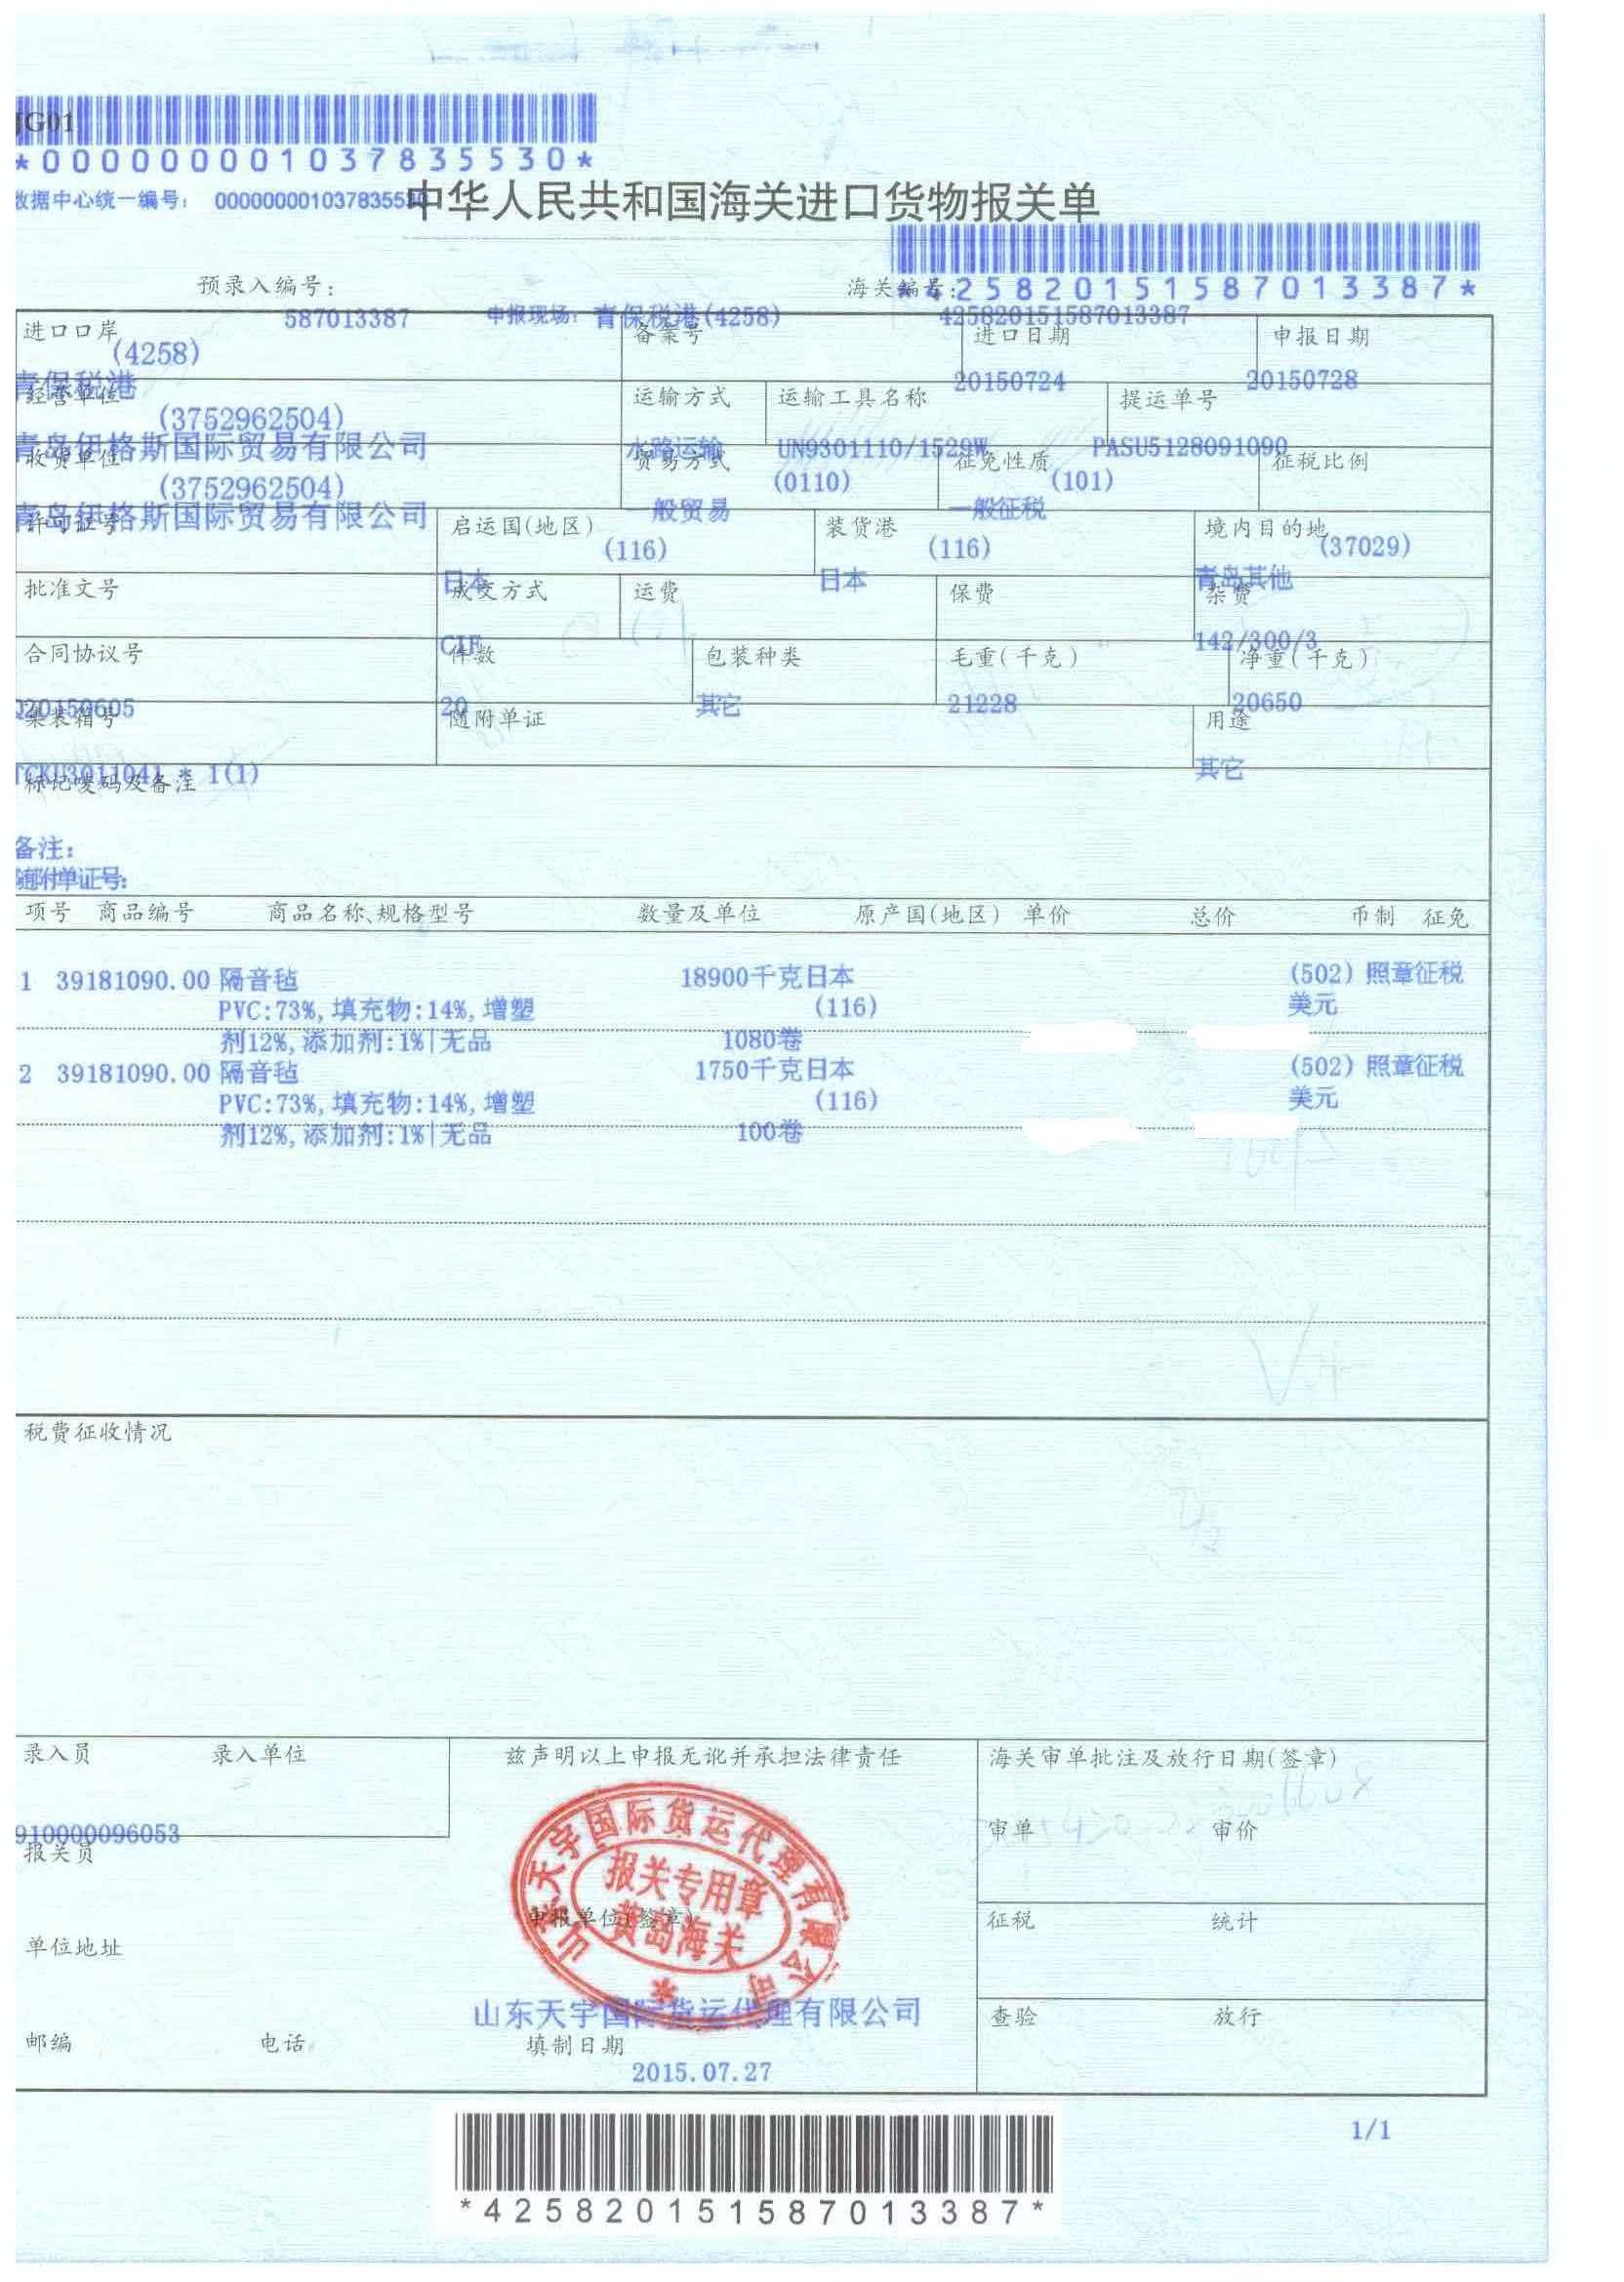 JG01
*000000001037835530*
数据中心统一编号: 000000001037835530
中华人民共和国海关进口货物报关单
*425820151587013387*
预录入编号: 587013387 申报现场: 青保税港(4258) 海关编号: 425820151587013387
进口口岸 (4258) 备案号 进口日期 申报日期
青保税港 20150724 20150728
经营单位 (3752962504) 运输方式 运输工具名称 提运单号
青岛伊格斯国际贸易有限公司 水路运输 UN9301110/1529W PASU5128091090
收货单位 (3752962504) 贸易方式 (0110) 征免性质 (101) 征税比例
青岛伊格斯国际贸易有限公司 一般贸易 一般征税
许可证号 启运国(地区) (116) 装货港 (116) 境内目的地 (37029)
日本 日本 青岛其他
批准文号 成交方式 运费 保费 杂费
CIF 142/300/3
合同协议号 件数 包装种类 毛重(千克) 净重(千克)
20150605 20 其它 21228 20650
集装箱号 随附单证 用途
TCKU3011041 * 1(1) 其它
标记唛码及备注
备注:
随附单证号:
项号 商品编号 商品名称、规格型号 数量及单位 原产国(地区) 单价 总价 币制 征免
1 39181090.00 隔音毡 18900千克 日本 (502) 照章征税
PVC:73%,填充物:14%,增塑 (116) 美元
剂12%,添加剂:1%|无品 1080卷
2 39181090.00 隔音毡 1750千克 日本 (502) 照章征税
PVC:73%,填充物:14%,增塑 (116) 美元
剂12%,添加剂:1%|无品 100卷
税费征收情况
录入员 录入单位 兹声明以上申报无讹并承担法律责任 海关审单批注及放行日期(签章)
910000096053
审单 审价
报关员
山东天宇国际货运代理有限公司
报关专用章
黄岛海关
申报单位(签章)
征税 统计
单位地址
山东天宇国际货运代理有限公司
查验 放行
邮编 电话 填制日期
2015.07.27
1/1
*425820151587013387*